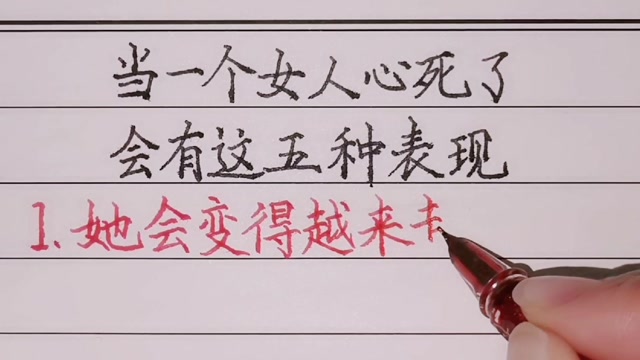 当一个女人心死了
会有这五种表现
1.她会变得越来